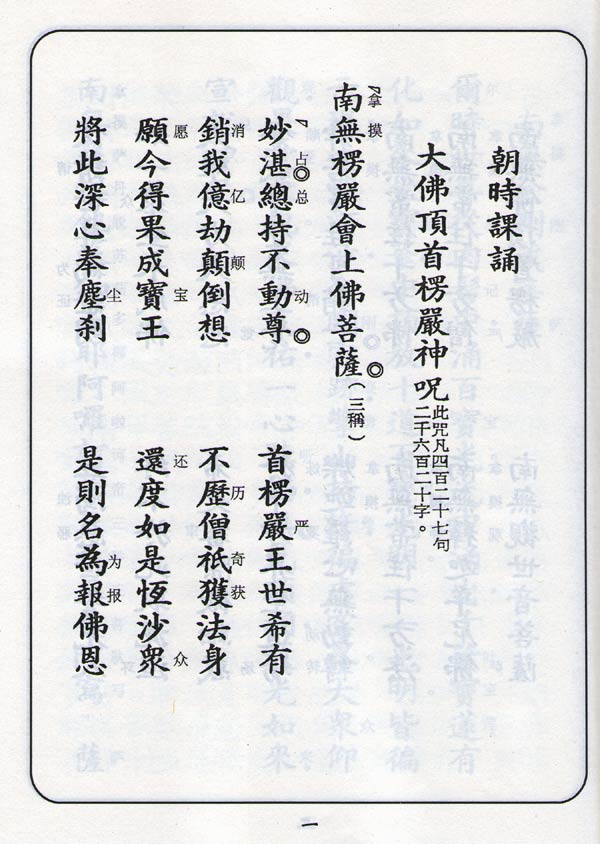 朝時課誦
大佛頂首楞嚴神咒 此咒凡四百二十七句 二千六百二十字。
南無楞嚴會上佛菩薩◎（三稱）
拿摸
妙湛總持不動尊◎ 首楞嚴王世希有
占◎总动 严
銷我億劫顛倒想 不歷僧祇獲法身
消亿颠 历奇获
願今得果成寶王 還度如是恆沙眾
愿宝 还众
將此深心奉塵剎 是則名為報佛恩
尘 为报
一